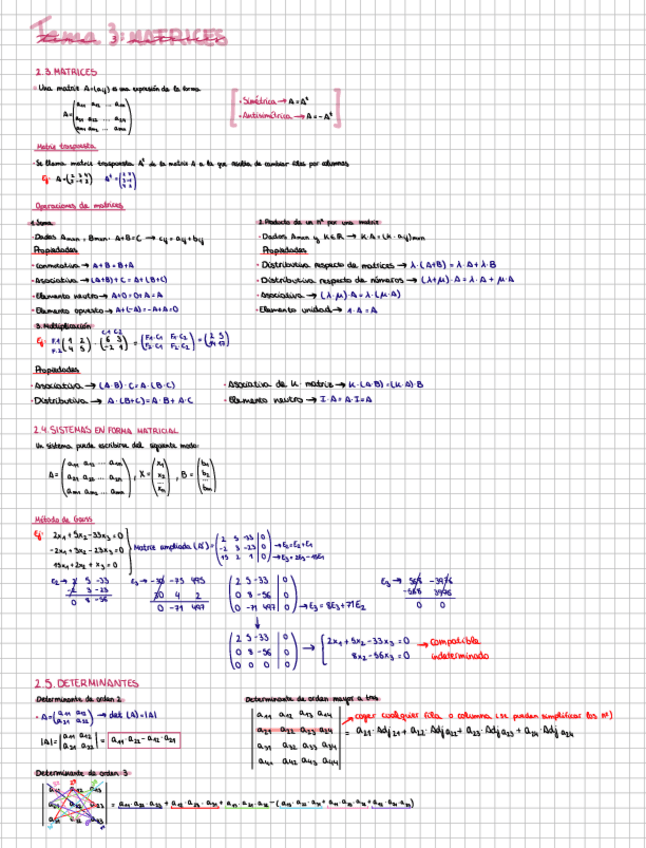 Tema 3: MATRICES
2.3. MATRICES
· Una matriz A=(aij) es una expresión de la forma
A=(a11 a12 ... a1n
a21 a22 ... a2n
am1 am2 ... amn)
· Simétrica → A=A^t
· Antisimétrica → A=-A^t
Matriz traspuesta
· Se llama matriz traspuesta A^t de la matriz A a la que resulta de cambiar filas por columnas
Operaciones de matrices
1. Suma
· Dados Amxn y Bmxn: A+B=C → cij=aij+bij
Propiedades
· Conmutativa → A+B=B+A
· Asociativa → (A+B)+C=A+(B+C)
· Elemento neutro → A+0=0+A=A
· Elemento opuesto → A+(-A)=-A+A=0
2. Producto de un nº por una matriz
· Dados Amxn y K∈R → K·A=(K·aij)mxn
Propiedades
· Distributiva respecto de matrices → λ·(A+B)=λ·A+λ·B
· Distributiva respecto de números → (λ+μ)·A=λ·A+μ·A
· Asociativa → (λ·μ)·A=λ·(μ·A)
· Elemento unidad → 1·A=A
3. Multiplicación
C1 C2
Ej: F1 F2 (1 2
4 5)·(6 3
-2 1)=(F1·C1 F1·C2
F2·C1 F2·C2)=(2 5
14 17)
Propiedades
· Asociativa → (A·B)·C=A·(B·C)
· Distributiva → A·(B+C)=A·B+A·C
· Asociativa de K matriz → K·(A·B)=(K·A)·B
· Elemento neutro → I·A=A·I=A
2.4. SISTEMAS EN FORMA MATRICIAL
Un sistema puede escribirse del siguiente modo:
A=(a11 a12 ... a1n
a21 a22 ... a2n
am1 am2 ... amn), X=(x1
x2
...
xn), B=(b1
b2
...
bm)
Método de Gauss
Ej: 2x1+5x2-33x3=0
-2x1+3x2-23x3=0
15x1+2x2+x3=0
Matriz ampliada (A*)=(2 5 -33 | 0
-2 3 -23 | 0
15 2 1 | 0) → E2=E2+E1
→ E3=2E3-15E1
E2 → 2 5 -33
-2 3 -23
0 8 -56
E3 → -30 -75 495
30 4 2
0 -71 497
(2 5 -33 | 0
0 8 -56 | 0
0 -71 497 | 0) → E3=8E3+71E2
E3 → 568 -3976
-568 3976
0 0
(2 5 -33 | 0
0 8 -56 | 0
0 0 0 | 0) → {2x1+5x2-33x3=0
8x2-56x3=0
→ compatible
indeterminado
2.5. DETERMINANTES
Determinante de orden 2
· A=(a11 a12
a21 a22) → det (A)=|A|
|A|=|a11 a12
a21 a22|= a11·a22-a12·a21
Determinante de orden mayor a tres
a11 a12 a13 a14
a21 a22 a23 a24
a31 a32 a33 a34
a41 a42 a43 a44
coger cualquier fila o columna (se pueden simplificar los nº)
= a21·Adj21+a22·Adj22+a23·Adj23+a24·Adj24
Determinante de orden 3
a11 a12 a13
a21 a22 a23
a31 a32 a33